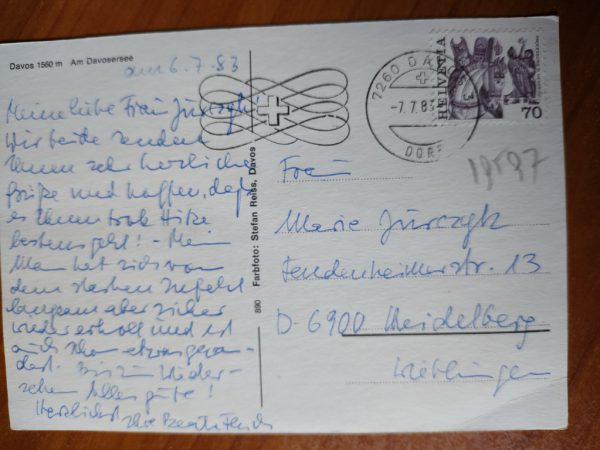 Davos 1560 m Am Davosersee
am 6.7.83
Meine liebe Frau Jurczyk!
Wir beide senden
Ihnen sehr herzliche
Grüße und hoffen, daß
es Ihnen trotz Hitze
bestens geht! - Mein
Mann hat sich von
dem starken Infekt
langsam aber sicher
wieder erholt und ist
auch schon etwas gewan-
dert. Bis zum Wieder-
sehen Alles Gute!
Herzlichst Ihre
890 Farbfoto: Stefan Reiss, Davos
7260 DAVOS
-7.7.83
DORF
HELVETIA
70
Frau
Marie Jurczyk
Fendenheimerstr. 13
D-6900 Heidelberg
Wieblingen